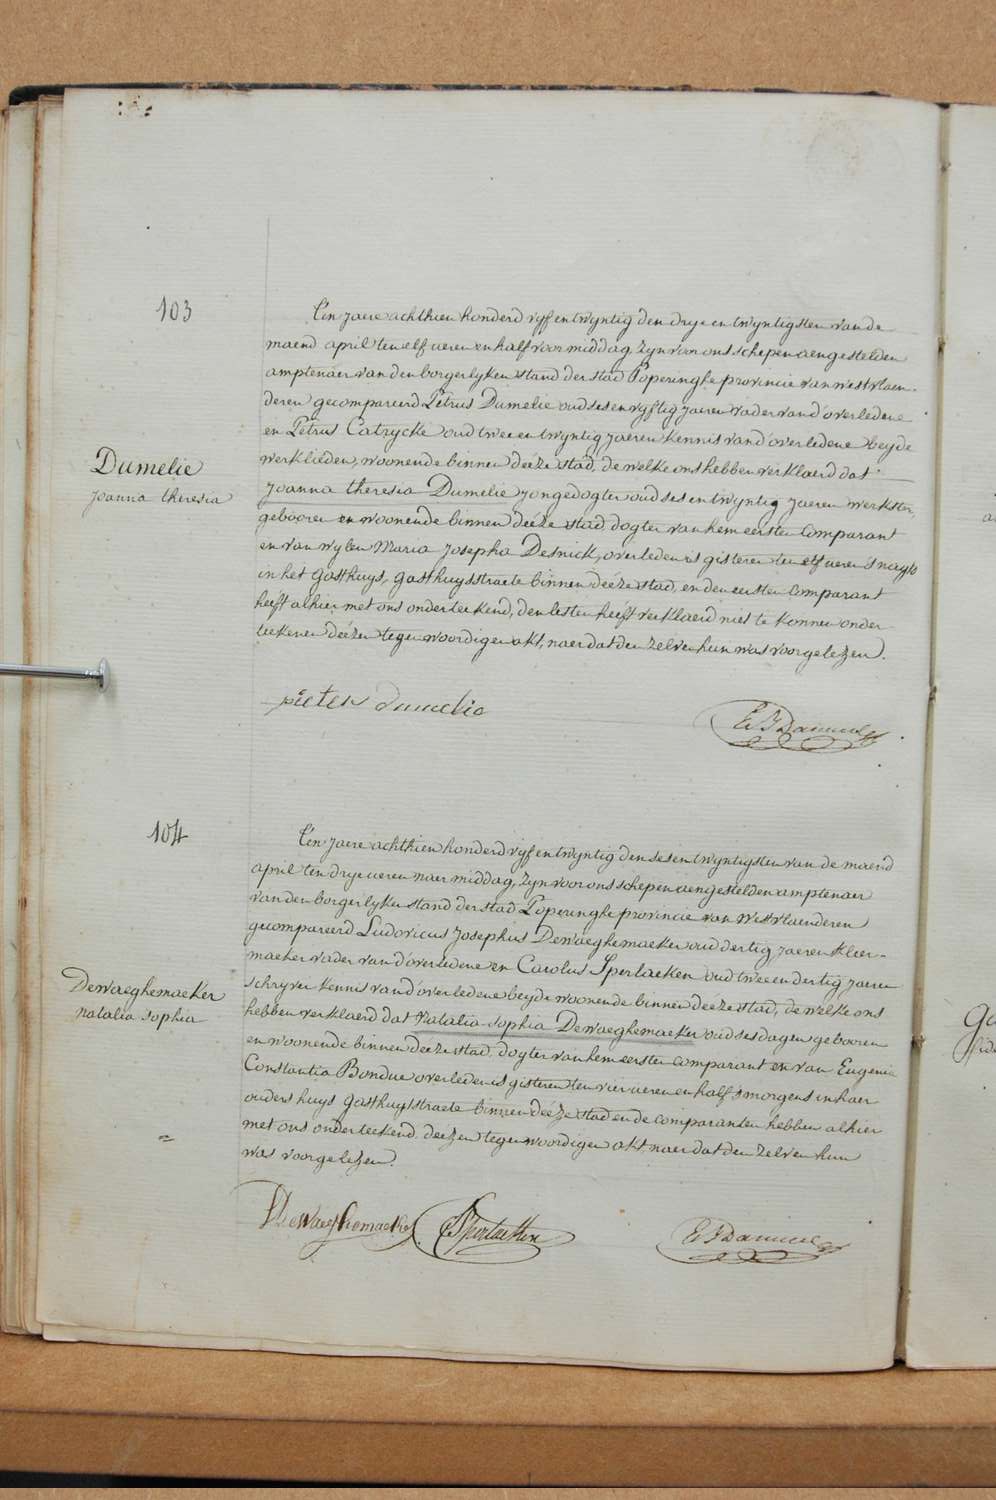 103
Dumelie
Joanna theresia
Ten jaere achthien honderd vyf en twyntig den drye en twyntigsten van de
maend april ten elf ueren en half voor middag, Zyn van ons schepen aengestelden
amptenaer van den borgerlyken stand der stad Poperinghe provincie van westvlaen-
deren gecompareerd Petrus Dumelie oud ses en vyftig jaeren vader vand'overledene
en Petrus Catrycke oud twee en twyntig jaeren kennis vand'overledene beyde
werklieden, woonende binnen deéze stad, de welke ons hebben verklaerd dat
Joanna theresia Dumelie jongedogter oud ses en twyntig jaeren werkster,
gebooren en woonende binnen deéze stad dogter van hem eersten Comparant
en van wylen Maria Josepha Desnick, overleden is gisteren ten elf ueren s'nagts
in het gasthuys, gasthuysstraete binnen deéze stad, en den eersten Comparant
heeft alhier met ons onderteekend, den lesten heeft verklaerd niet te konnen onder
teekenen deézen tegenwoordigen akt, naer dat den zelven hun was voorgelezen.
pieter dumelie
104
Dewaeghemaeker
natalia sophia
Ten jaere achthien honderd vyf en twyntig den ses en twyntigsten van de maend
april ten drye ueren naer middag, Zyn voor ons schepen aengestelden amptenaer
van den borgerlyken stand der stad Poperinghe provincie van Westvlaenderen
gecompareerd Ludovicus Josephus Dewaeghemaeker oud dertig jaeren kleer-
maeker vader van d'overledene en Carolus Sperlaeken oud twee en dertig jaeren
schryver kennis vand'overledene beyde woonende binnen deeze stad, de welke ons
hebben verklaerd dat Natalia sophia Dewaeghemaeker oud ses dagen gebooren
en woonende binnen deeze stad, dogter van hem eersten comparant en van Eugenia
Constantia Bondue overleden is gisteren ten vier ueren en half s'morgens in haer
ouders huys gasthuystraete binnen deéze stad en de comparanten hebben alhier
met ons onderteekend deezen tegenwoordigen akt naer dat den zelven hun
was voorgelezen.
Dewaeghemaeker Sperlaeken